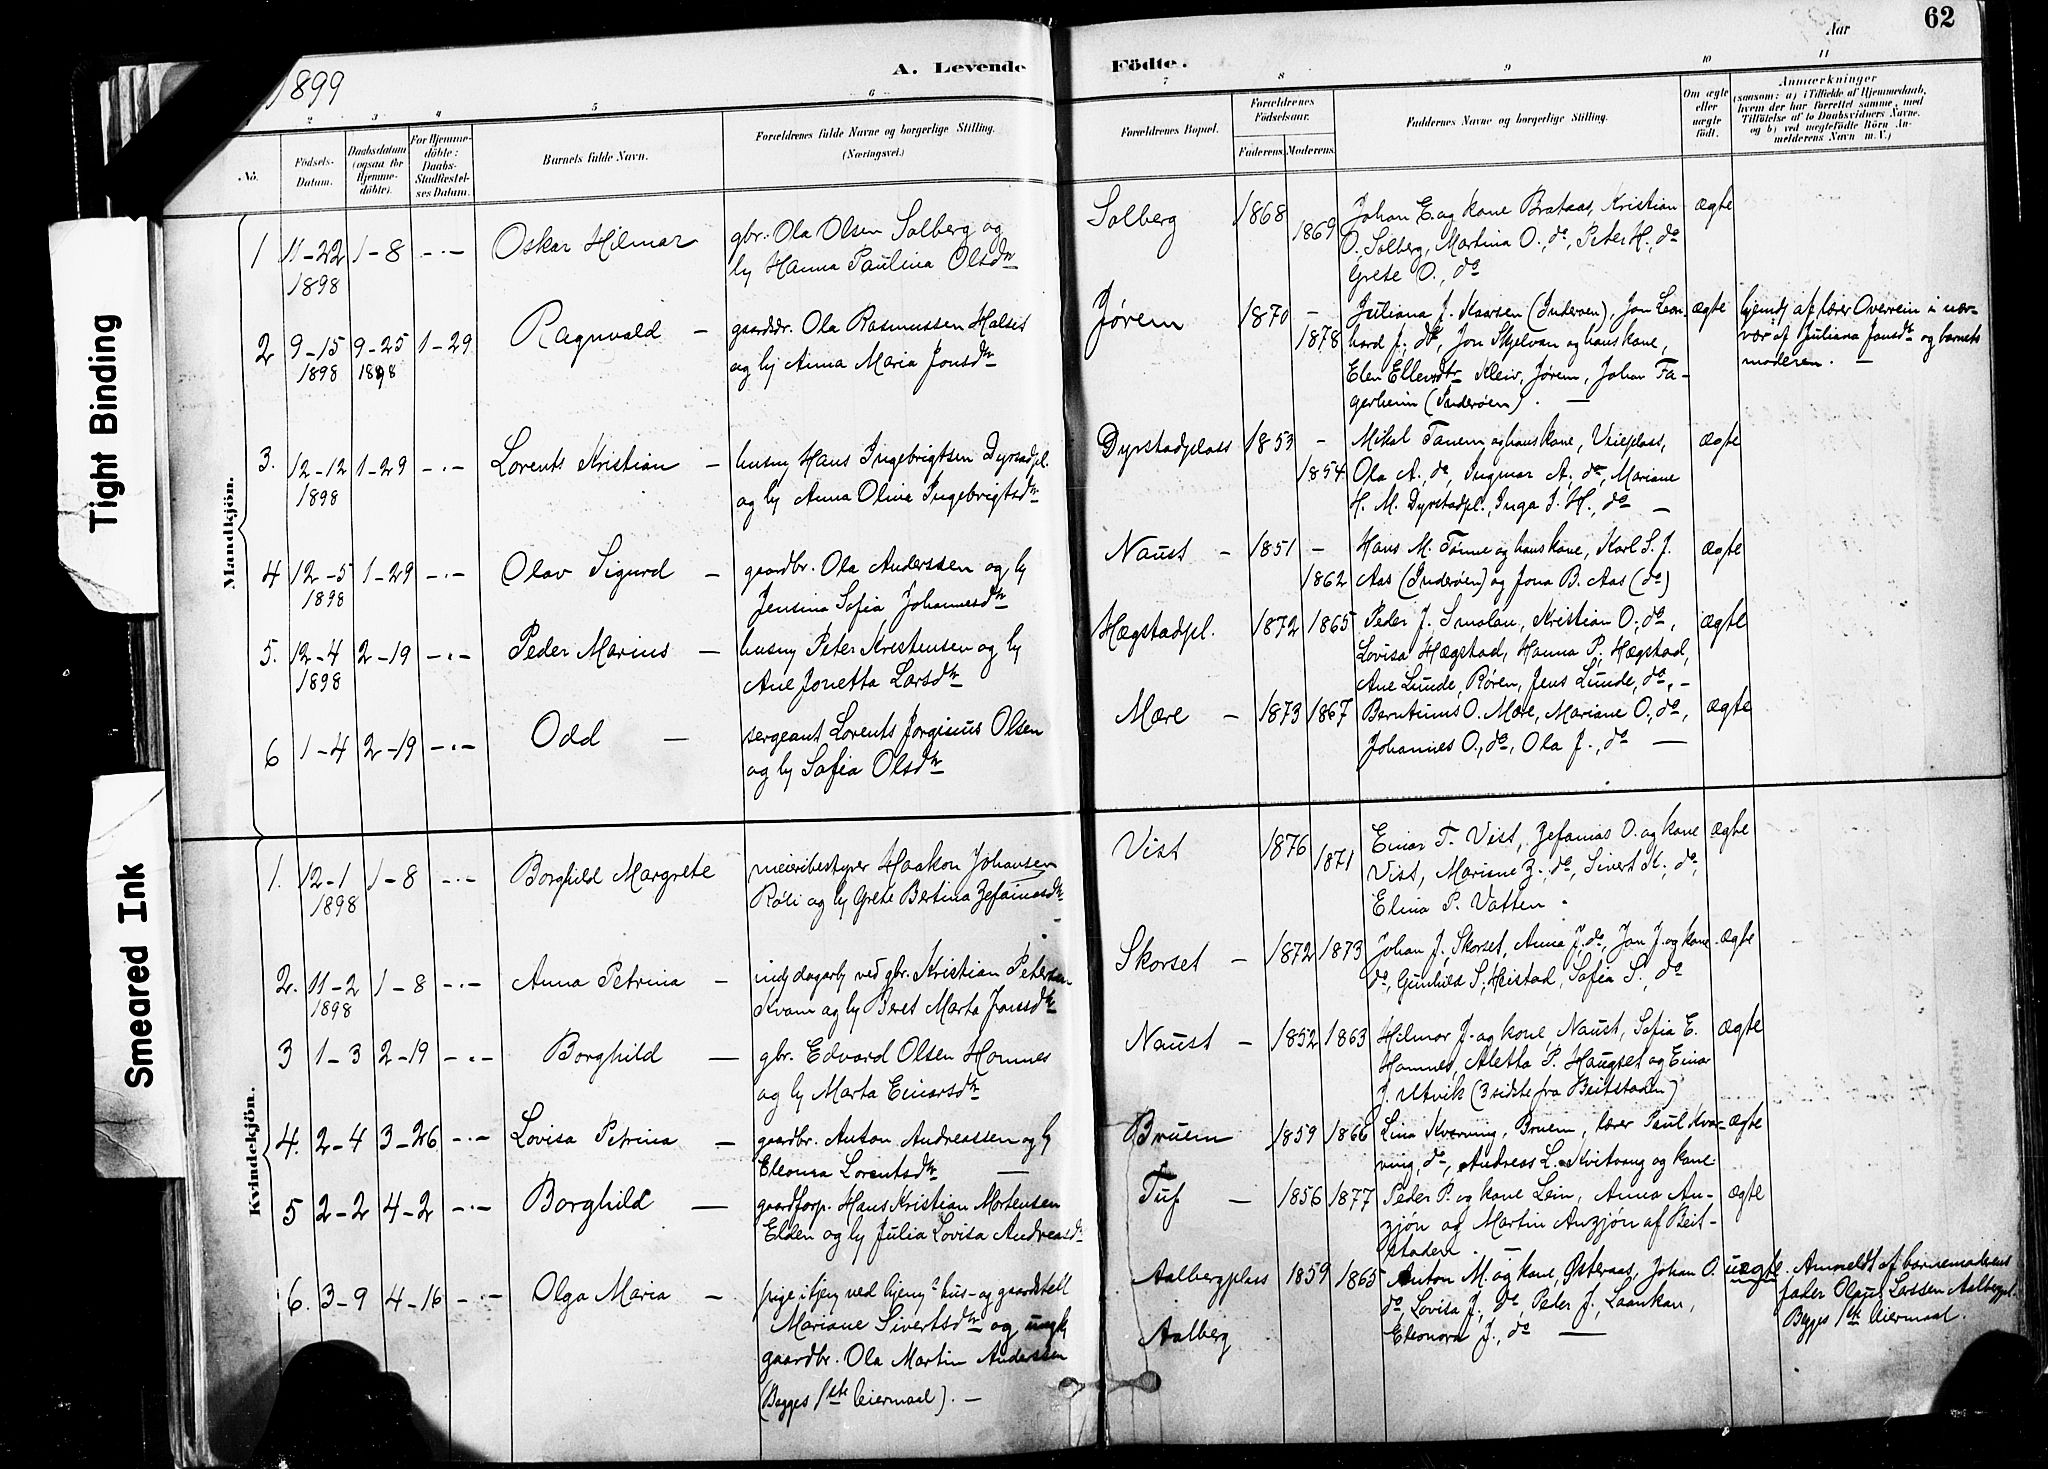 62
Aar
1899
A. Levende Födte.
2 3 4 5 6 7 8 9 10 11
No.
Födsels-Datum.
Daabsdatum (ogsaa for Hjemme-döbte).
For Hjemme-döbte: Daabs-Stadfæstel-ses Datum.
Barnets fulde Navn.
Forældrenes fulde Navne og borgerlige Stilling. (Næringsvei.)
Forældrenes Bopæl.
Forældrenes Födselsaar.
Faderens. Moderens.
Faddernes Navne og borgerlige Stilling.
Om ægte eller uægte födt.
Anmærkninger
(saasom: a) i Tilfælde af Hjemmedaab, hvem der har forrettet samme, med Tilföielse af to Daabsvidners Navne. og b) ved uægtefödte Börn An-melderens Navn m. V.)
Tight Binding
Smeared Ink
Mandkjön.
1 11-22 1898 1-8 -.- Oskar Hilmar
gbr. Ola Olsen Solberg og
hu Hanna Paulina Olsdtr
Solberg 1868 1869
Johan E. og kone Brataas, Kristian
O. Solberg, Martina O., do, Peter H., do
Grete O., do
ægte
2 9-15 1898 9-25 1898 1-29 Ragnvald -
gaardbr. Ola Rasmussen Halset
og hu Anna Maria Jonsdtr
Jørem 1870 - 1878
Juliana J. Kaarsen (Inderøen), Jon Leon-
hard J. do, Jon Skjelvan og hans kone,
Elen Ellevsdtr Kleiv, Jørem, Johan Fa-
gerheim (Inderøen). -
ægte
hjemd af lærer Overrein i nær-
vær af Juliana Jonsdtr og barnets
moderen. -
3. 12-12 1898 1-29 -.- Lorents Kristian -
husm Hans Ingebrigtsen Dyrstadpl.
og hu Anna Olina Ingebrigtsdtr
Dyrstadplass 1853 - 1854
Mikal Tanem og hans kone, Vieplass,
Ola A., do, Ingmar A., do, Mariane
H. M. Dyrstadpl., Inga J. H., do -
ægte
4 12-5 1898 1-29 -.- Olav Sigurd -
gaardbr. Ola Anderssen og hu
Jensina Sofia Johannesdtr
Naust - 1851 - 1862
Hans M. Tønne og hans kone, Karl S. J.
Aas (Inderøen) og Jona B. Aas (do)
ægte
5. 12-4 1898 2-19 -.- Peder Marius -
husm Peter Kristensen og hu
Ane Jonetta Larsdtr
Hægstadpl. 1872 1865
Peder J. Smolan, Kristian O., do,
Lovisa Hægstad, Hanna P. Hægstad,
Ane Lunde, Røren, Jens Lunde, do. -
ægte
6 1-4 2-19 -.- Odd -
sergeant Lorents Jorginus Olsen
og hu Sofia Olsdtr
Mære - 1873 1867
Berntinus O. Mære, Mariane O., do,
Johannes O., do, Ola J., do -
ægte
Kvindekjön.
1. 12-1 1898 1-8 -.- Borghild Margrete
meieribestyrer Haakon Johansen
Røli og hu Grete Bertina Zefaniasdtr
Vist 1876 1871
Einar T. Vist, Zefanias O. og kone
Vist, Mariane Z., do, Sivert K., do,
Elina P. Vatten.
ægte
2. 11-2 1898 1-8 -.- Anna Petrina -
indj dagarb ved gbr. Kristian Petersen
Kvam og hu Beret Marta Jonsdtr
Skorset - 1872 1873
Johan J. Skorset, Anna J. do, Jon J. og kone
do, Gunhild S. Heistad, Sofia S., do
ægte
3 1-3 2-19 -.- Borghild -
gbr. Edvard Olsen Homnes
og hu Marta Einarsdtr
Naust - 1852 1863
Hilmar J. og kone, Naust, Sofia E.
Homnes, Aletta P. Haugset og Einar
J. Utvik (3 sidste fra Beitstaden)
ægte
4. 2-4 3-26 -.- Lovisa Petrina -
gaardbr. Anton Andreassen og hu
Eleonora Lorentsdtr
Bruem 1859 1866
Lina Kverving, Bruem, lærer Paul Kver-
ving, do, Andreas L. Kvitvang og kone
ægte
5 2-2 4-2 -.- Borghild -
gaardforp. Hans Kristian Mortensen
Elden og hu Julia Lovisa Andreasd
Tuf - 1856 1877
Peder P. og kone Lein, Anna An-
zjøn og Martin Anzjøn af Beit-
staden. -
ægte
6. 3-9 4-16 -.- Olga Maria -
pige i tjen ved hjem i hus- og gaardstell
Mariane Sivertsdtr og ungk
gaardbr. Ola Martin Anderssen
(Begges 1ste leiermaal). -
Aalbergplass 1859 1865
Aalberg
Anton M. og kone Østeraas, Johan O.
do, Lovisa J., do, Peder J., Laankan,
Eleonora J., do -
uægte.
Anmeldt af barnemoderens
fader Olaus Larssen Aalbergpl.
Begges 1ste leiermaal.